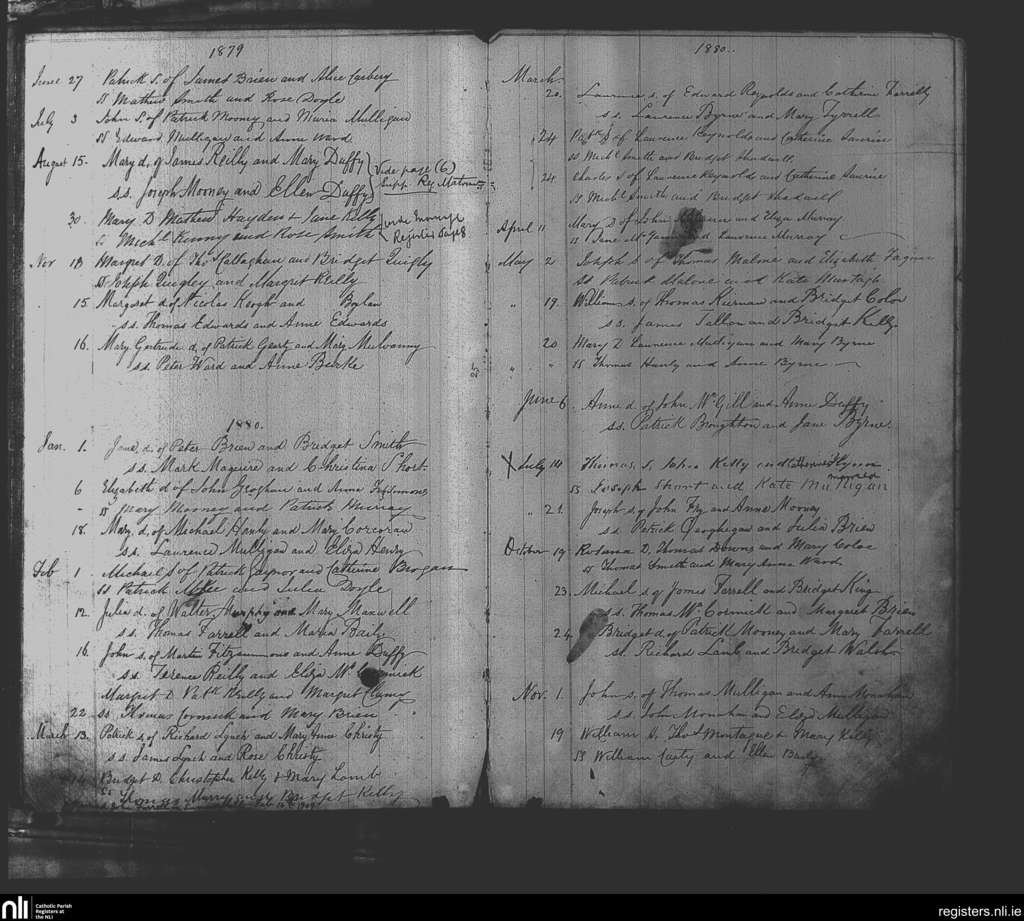 1879
June 27 Patrick s. of James Brien and Alice Carbery
ss Mathew Smith and Rose Doyle
July 3 John S. of Patrick Mooney and Maria Mulligan
ss Edward Mulligan and Anne Ward
August 15. Mary d. of James Reilly and Mary Duffy Vide page (6)
s.s. Joseph Mooney and Ellen Duffy Supp. Reg.
30. Mary D Mathew Hayden & Jane Kelly vide
ss Michl Kenny and Rose Smith Register page 8
Nov 13 Margret D. of Thos Callaghan and Bridget Quigly
ss Joseph Quigley and Margret Reilly
15 Margaret d. of Nicolas Keogh and Boylan
s.s. Thomas Edwards and Anne Edwards
16. Mary Gertrude d. of Patrick Gearty and Mary Mulvanny
s.s. Peter Ward and Anne Burke
1880.
Jan. 1. Jane, d. of Peter Brien and Bridget Smith
s.s. Mark Maguire and Christina Short
6 Elizabeth d of John Geoghan and Anne Fitzsimons
ss Mary Mooney and Patrick Murray
18. Mary, d. of Michael Hanly and Mary Corcoran
s.s. Laurence Mulligan and Eliza Henry
Feb 1 Michael s of Patrick Gaynor and Catherine Brogan
ss Patrick and Julia Doyle
12. Julia d. of Walter Murphy and Mary Maxwell
s.s. Thomas Farrell and Maria Baily
16. John s. of Martin Fitzsimmons and Anne Duffy
s.s. Terence Reilly and Eliza
Margret D. Patk Reilly and Margret
22 ss Thomas Cormick and Mary Brien
March 13. Patrick s. of Richard Lynch and Mary Anne Christy
s.s. James Lynch and Rose Christy
14 Bridget D. Christopher Kelly & Mary Lamb
ss Murray Bridget Kelly
1880..
March.
20. Laurence s. of Edward Reynolds and Catherine Farrelly
s.s. Laurence Byrne and Mary Tyrrell
24 Patk S of Laurence Reynolds and Catherine
ss Michl Smith and Bridget
24 Charles S of Laurence Reynolds and Catherine
ss Michl Smith and Bridget
April 11 Mary D of John and Eliza Murray
ss Jane and Laurence Murray
May 2 Joseph s of Thomas Malone and Elizabeth Fagan
ss Patrick Malone and Kate Murtagh
" 19. William s. of Thomas Kiernan and Bridget Coloe
s.s. James Fallon and Bridget Kelly
20 Mary D Laurence Mulligan and Mary Byrne
" " ss Thomas Hanly and Anne Byrne
June 6. Anne d. of John McGill and Anne Duffy
s.s. Patrick Broughton and Jane Byrne
X July 14 Thomas S. John Kelly and Catherine Flynn
married
ss Joseph Short and Kate Mulligan
" 21. Joseph s. of John Fry and Anne Mooney
s.s. Patrick Geoghegan and Julia Brien
October 19 Rosana D. Thomas Downs and Mary Coloe
ss Thomas Smith and Mary Anne Ward
23. Michael s. of James Farrell and Bridget King
s.s. Thomas McCormick and Margret Brien
24 Bridget d. of Patrick Mooney and Mary Farrell
ss. Richard Lamb and Bridget Walsh
Nov. 1. John s. of Thomas Mulligan and Anne Monahan
s.s. John Monahan and Eliza Mulligan
19 William S. Thos Montague & Mary Kelly
ss William Carty and Ellen Baily
nli Catholic Parish
Registers at
the NLI
registers.nli.ie